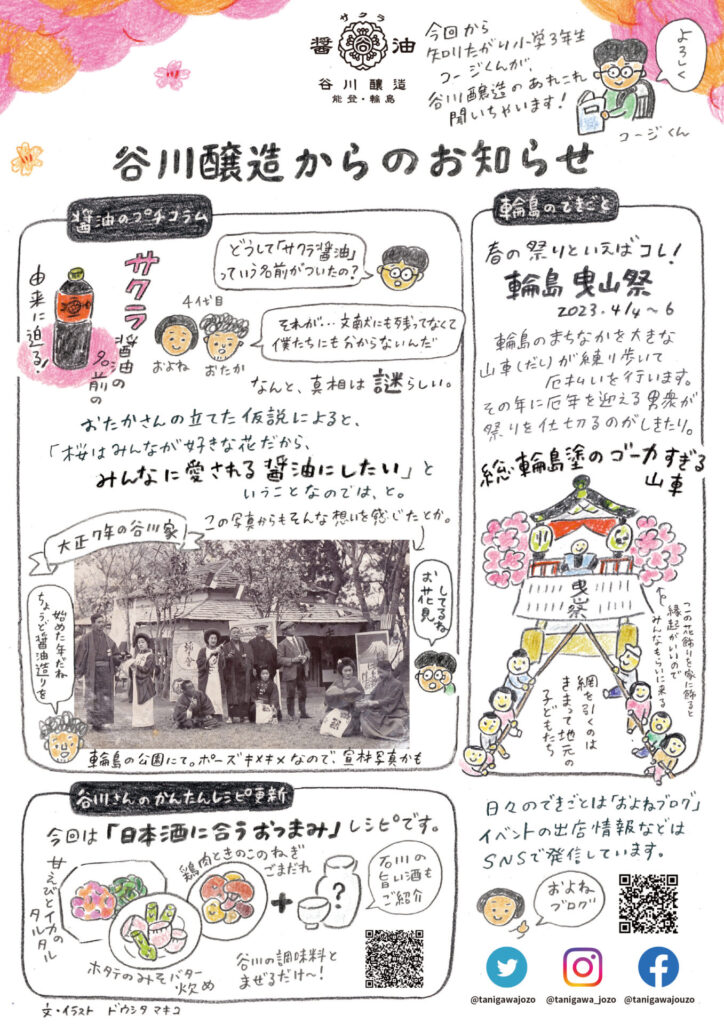 サクラ
醤油
谷川醸造
能登・輪島
今回から
知りたがり小学3年生
コージくんが、
谷川醸造のあれこれ
聞いちゃいます!
よろしく
コージくん
谷川醸造からのお知らせ
醤油のプチコラム
サクラ
醤油の
名前の
由来に迫る!
どうして「サクラ醤油」
っていう名前がついたの?
4代目
およね
おたか
それが…文献にも残ってなくて
僕たちにも分からないんだ
なんと、真相は謎らしい。
おたかさんの立てた仮説によると、
「桜はみんなが好きな花だから、
みんなに愛される醤油にしたい」と
いうことなのでは、と。
この写真からもそんな想いを感じたとか。
大正7年の谷川家
ちょうど醤油造りを
始めた年だね
お花見
してるね
輪島の公園にて。ポーズキメキメなので、宣材写真かも
輪島のできごと
春の祭りといえばコレ!
輪島 曳山祭
2023.4/4~6
輪島のまちなかを大きな
山車(だし)が練り歩いて
厄払いを行います。
その年に厄年を迎える男衆が
祭りを仕切るのがしきたり。
総輪島塗のゴーカすぎる
山車
曳山祭
この花飾りを家に飾ると
縁起がいいので
みんなもらいに来る
綱を引くのは
きまって地元の
子どもたち
谷川さんのかんたんレシピ更新
今回は「日本酒に合うおつまみ」レシピです。
甘えびとイカの
タルタル
鶏肉ときのこのねぎ
ごまだれ
ホタテのみそバター
炒め
+
?
石川の
旨い酒も
ご紹介
谷川の調味料と
まぜるだけ〜!
日々のできごとは「およねブログ」
イベントの出店情報などは
SNSで発信しています。
およね
ブログ
@tanigawajozo
@tanigawa_jozo
@tanigawajouzo
文・イラスト ドウシタマキコ